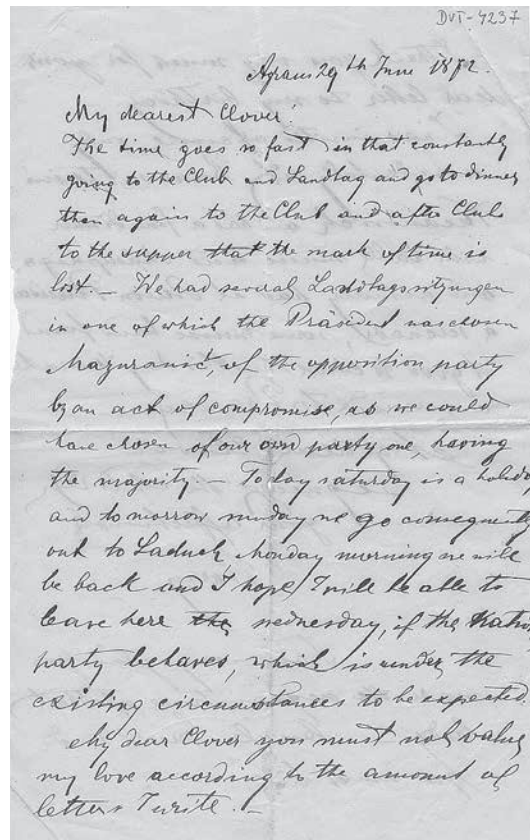 DVT-4237
Agram 29th June 1872.
My dearest Clover!
The time goes so fast in that constantly
going to the Club and Landtag and go to dinner
then again to the Club and after Club
to the supper that the mark of time is
lost. – We had several Landtagssitzungen
in one of which the Präsident was chosen
Mazuranić, of the opposition party
by an act of compromise, as we could
have chosen of our own party one, having
the majority. – To day saturday is a holiday
and to morrow sunday we go consequently
out to Laduch, Monday morning we will
be back and I hope I will be able to
leave here the wednesday, if the
party behaves, which is under the
existing circumstances to be expected.
My dear Clover you must not value
my love according to the amount of
letters I write. –